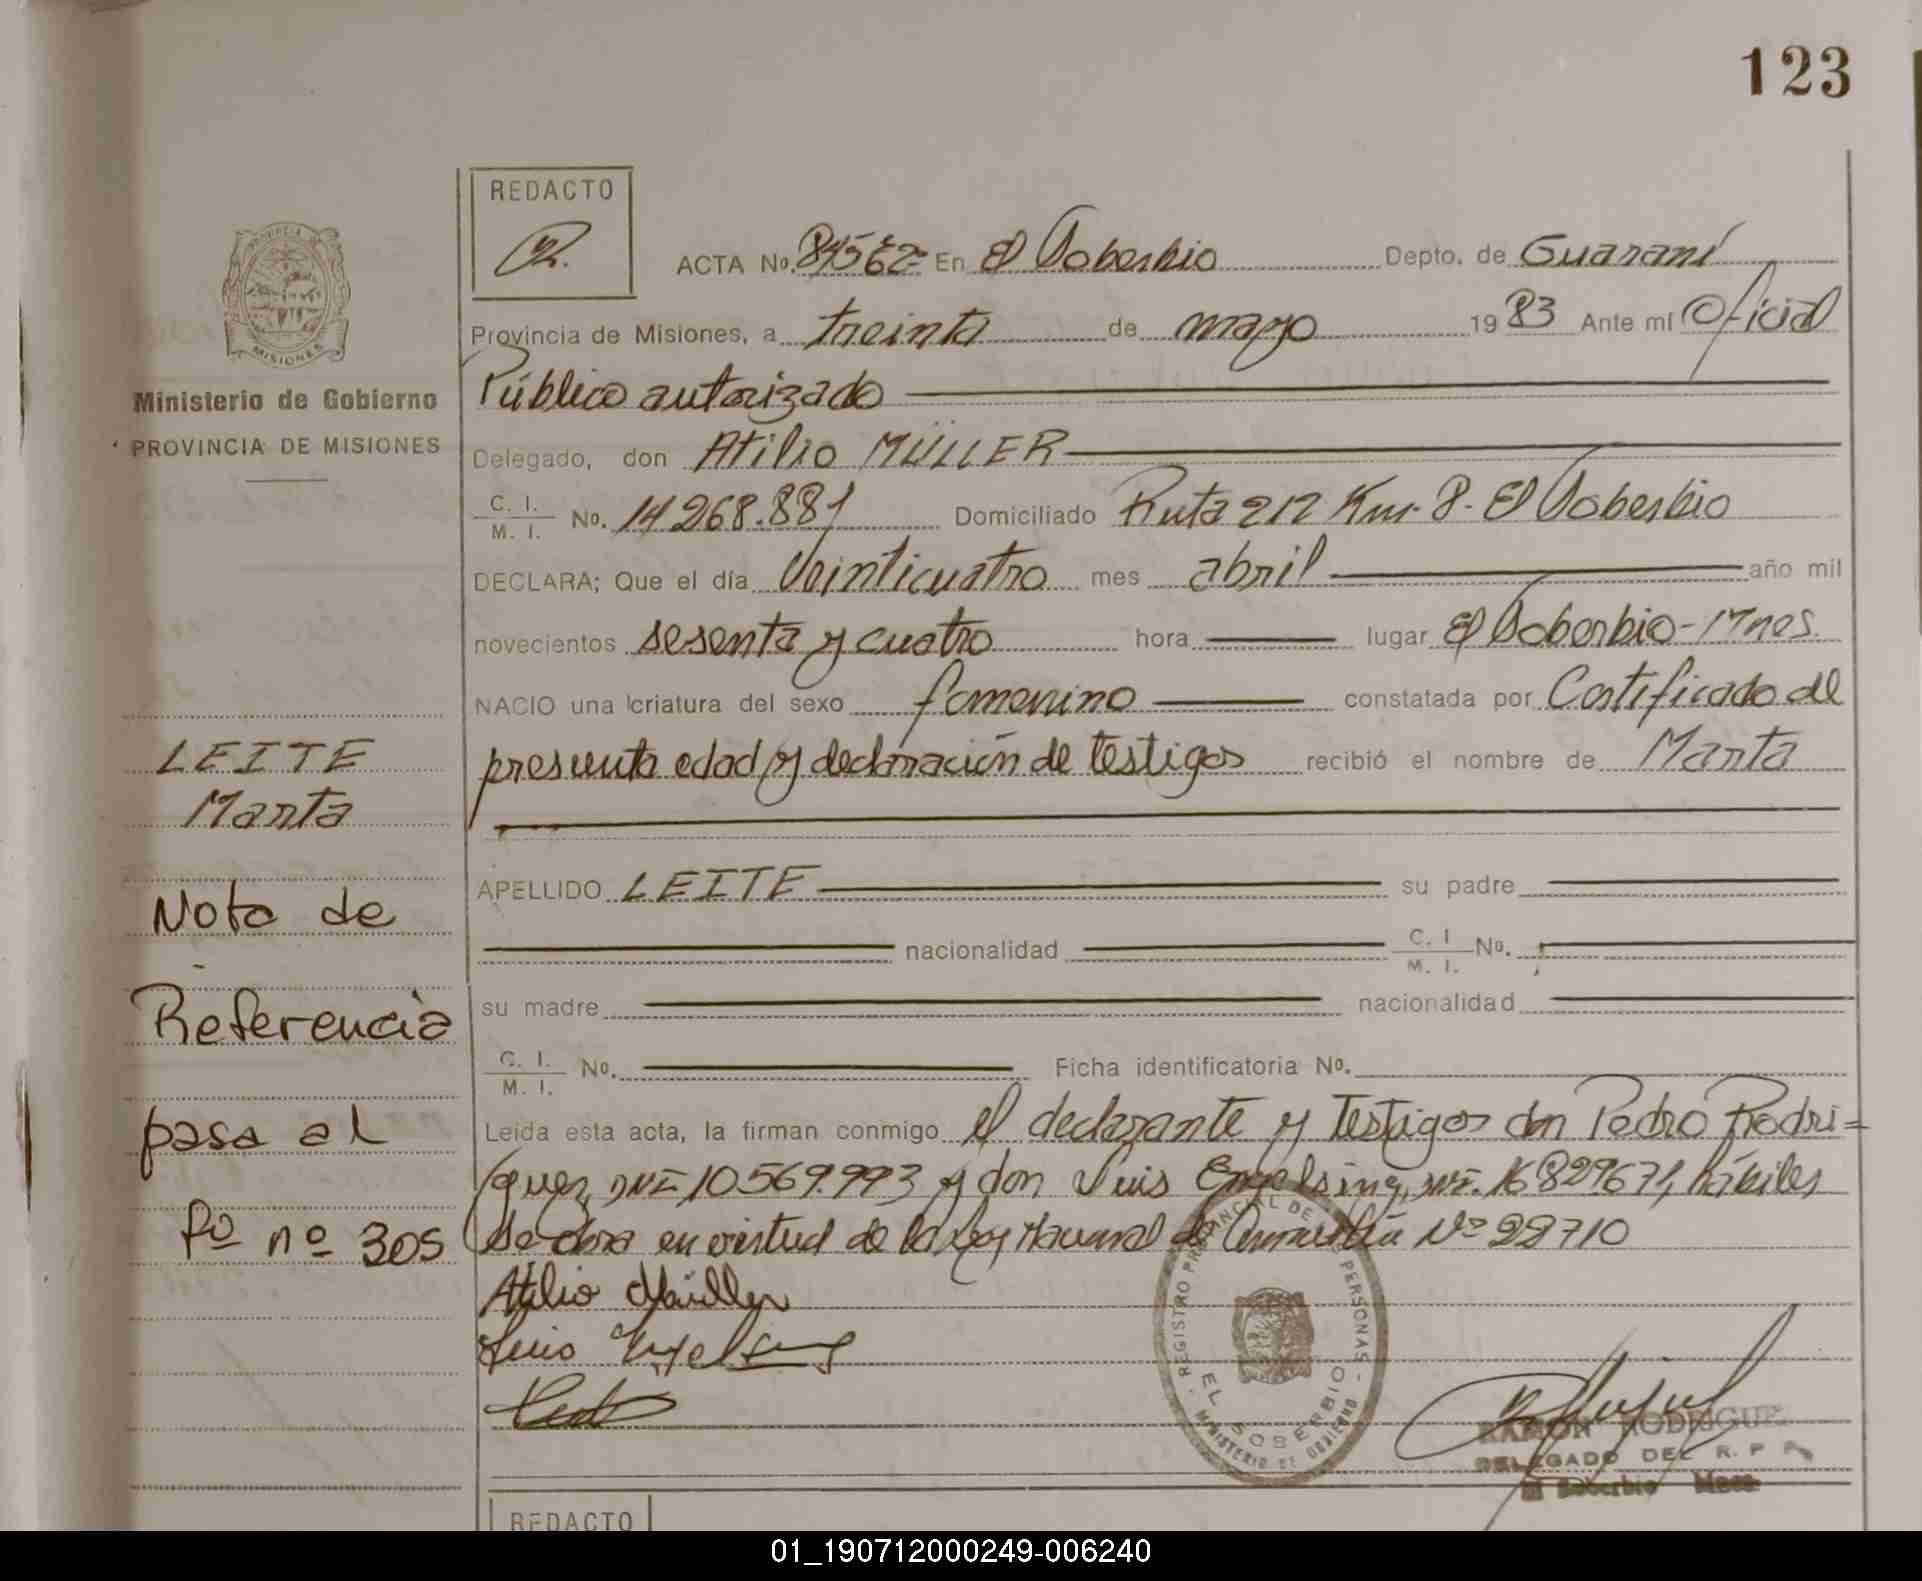 123
REDACTO
ACTA No. 84562= En El Soberbio Depto. de Guaraní
Provincia de Misiones, a treinta de mayo 1983 Ante mí Oficial
Público autorizado
Ministerio de Gobierno
PROVINCIA DE MISIONES
Delegado, don Atilio MÜLLER
C. I.
M. I. No. 14268.881 Domiciliado Ruta 212 Km. 8. El Soberbio
DECLARA; Que el día veinticuatro mes abril año mil
novecientos sesenta y cuatro hora lugar El Soberbio-Mnes.
NACIO una criatura del sexo femenino constatada por Certificado de
presunta edad y declaración de testigos recibió el nombre de Marta
LEITE
Marta
APELLIDO LEITE su padre
nacionalidad C. I
M. I. No.
su madre nacionalidad
C. I.
M. I. No. Ficha identificatoria No.
Nota de
Referencia
pasa al
fº nº 305
Leída esta acta, la firman conmigo el declarante y testigos don Pedro Rodri=
guez, DNI 10569.993 y don Luis Engelsing, DNI. 16829671, hábiles
Se obra en virtud de la Ley Nacional de Amnistía Nº 22710
Atilio Müller
Luis Engelsing
REGISTRO PROVINCIAL DE LAS PERSONAS
EL SOBERBIO
MINISTERIO DE GOBIERNO
RAMON RODRIGUEZ
DELEGADO DEL R. P. P.
El Soberbio Mnes
REDACTO
MISIONES
01_190712000249-006240